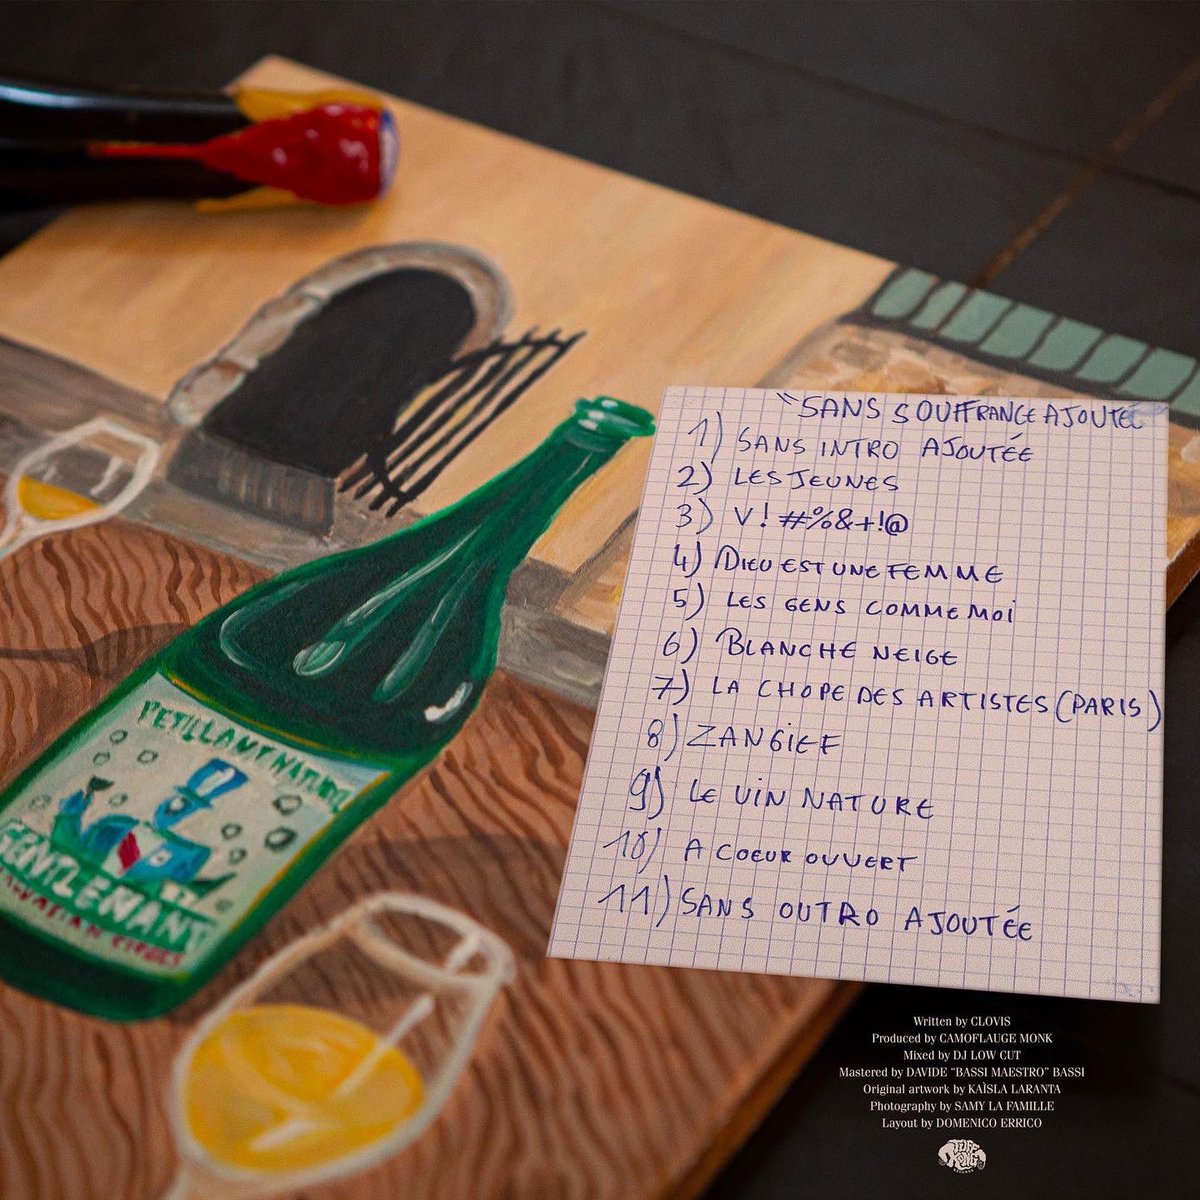 "SANS SOUFFRANCE AJOUTÉE"
1) SANS INTRO AJOUTÉE
2) LES JEUNES
3) V!#%&+!@
4) DIEU EST UNE FEMME
5) LES GENS COMME MOI
6) BLANCHE NEIGE
7) LA CHOPE DES ARTISTES (PARIS)
8) ZANGIEF
9) LE VIN NATURE
10) A COEUR OUVERT
11) SANS OUTRO AJOUTÉE
PETILLANT NATUREL
GENTLEMANT
Written by CLOVIS
Produced by CAMOFLAUGE MONK
Mixed by DJ LOW CUT
Mastered by DAVIDE "BASSI MAESTRO" BASSI
Original artwork by KAÌSLA LARANTA
Photography by SAMY LA FAMILLE
Layout by DOMENICO ERRICO
TUFF
KONG
RECORDS